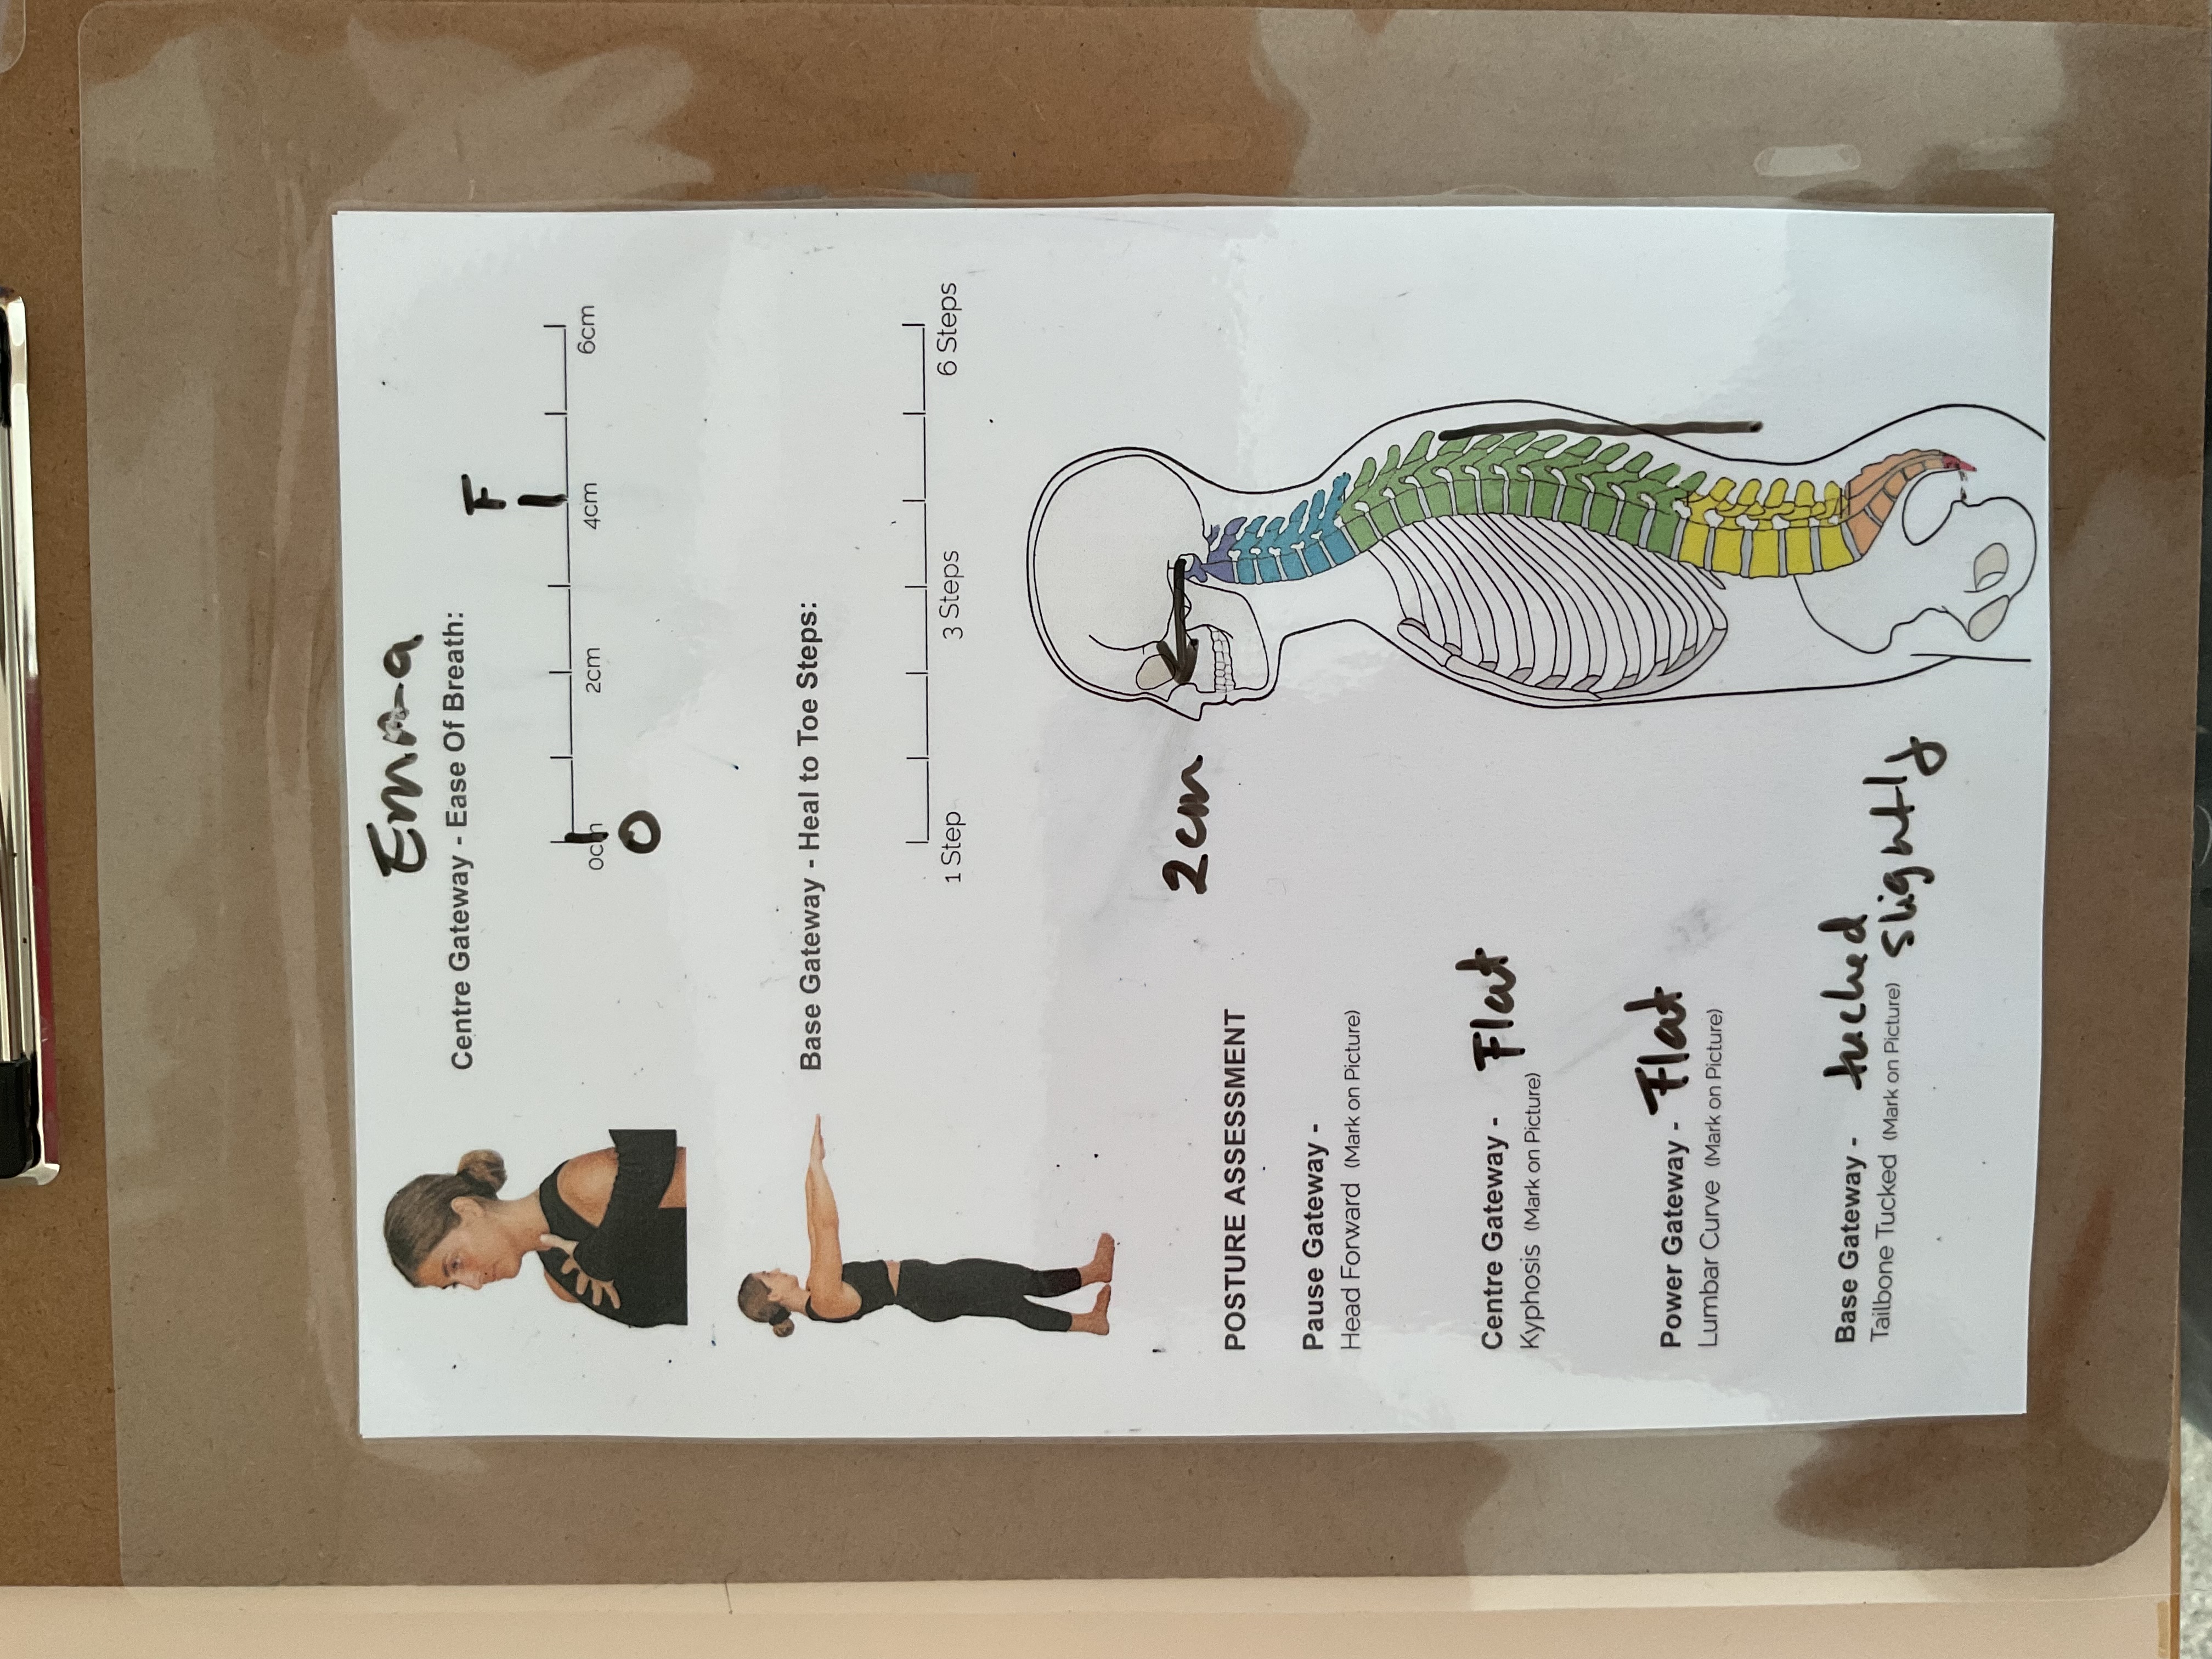 Emma
Centre Gateway - Ease Of Breath:
F
0cm 2cm 4cm 6cm
O
Base Gateway - Heal to Toe Steps:
1 Step 3 Steps 6 Steps
2cm
POSTURE ASSESSMENT
Pause Gateway -
Head Forward (Mark on Picture)
Centre Gateway - Flat
Kyphosis (Mark on Picture)
Power Gateway - Flat
Lumbar Curve (Mark on Picture)
Base Gateway - tucked
Tailbone Tucked (Mark on Picture) slightly